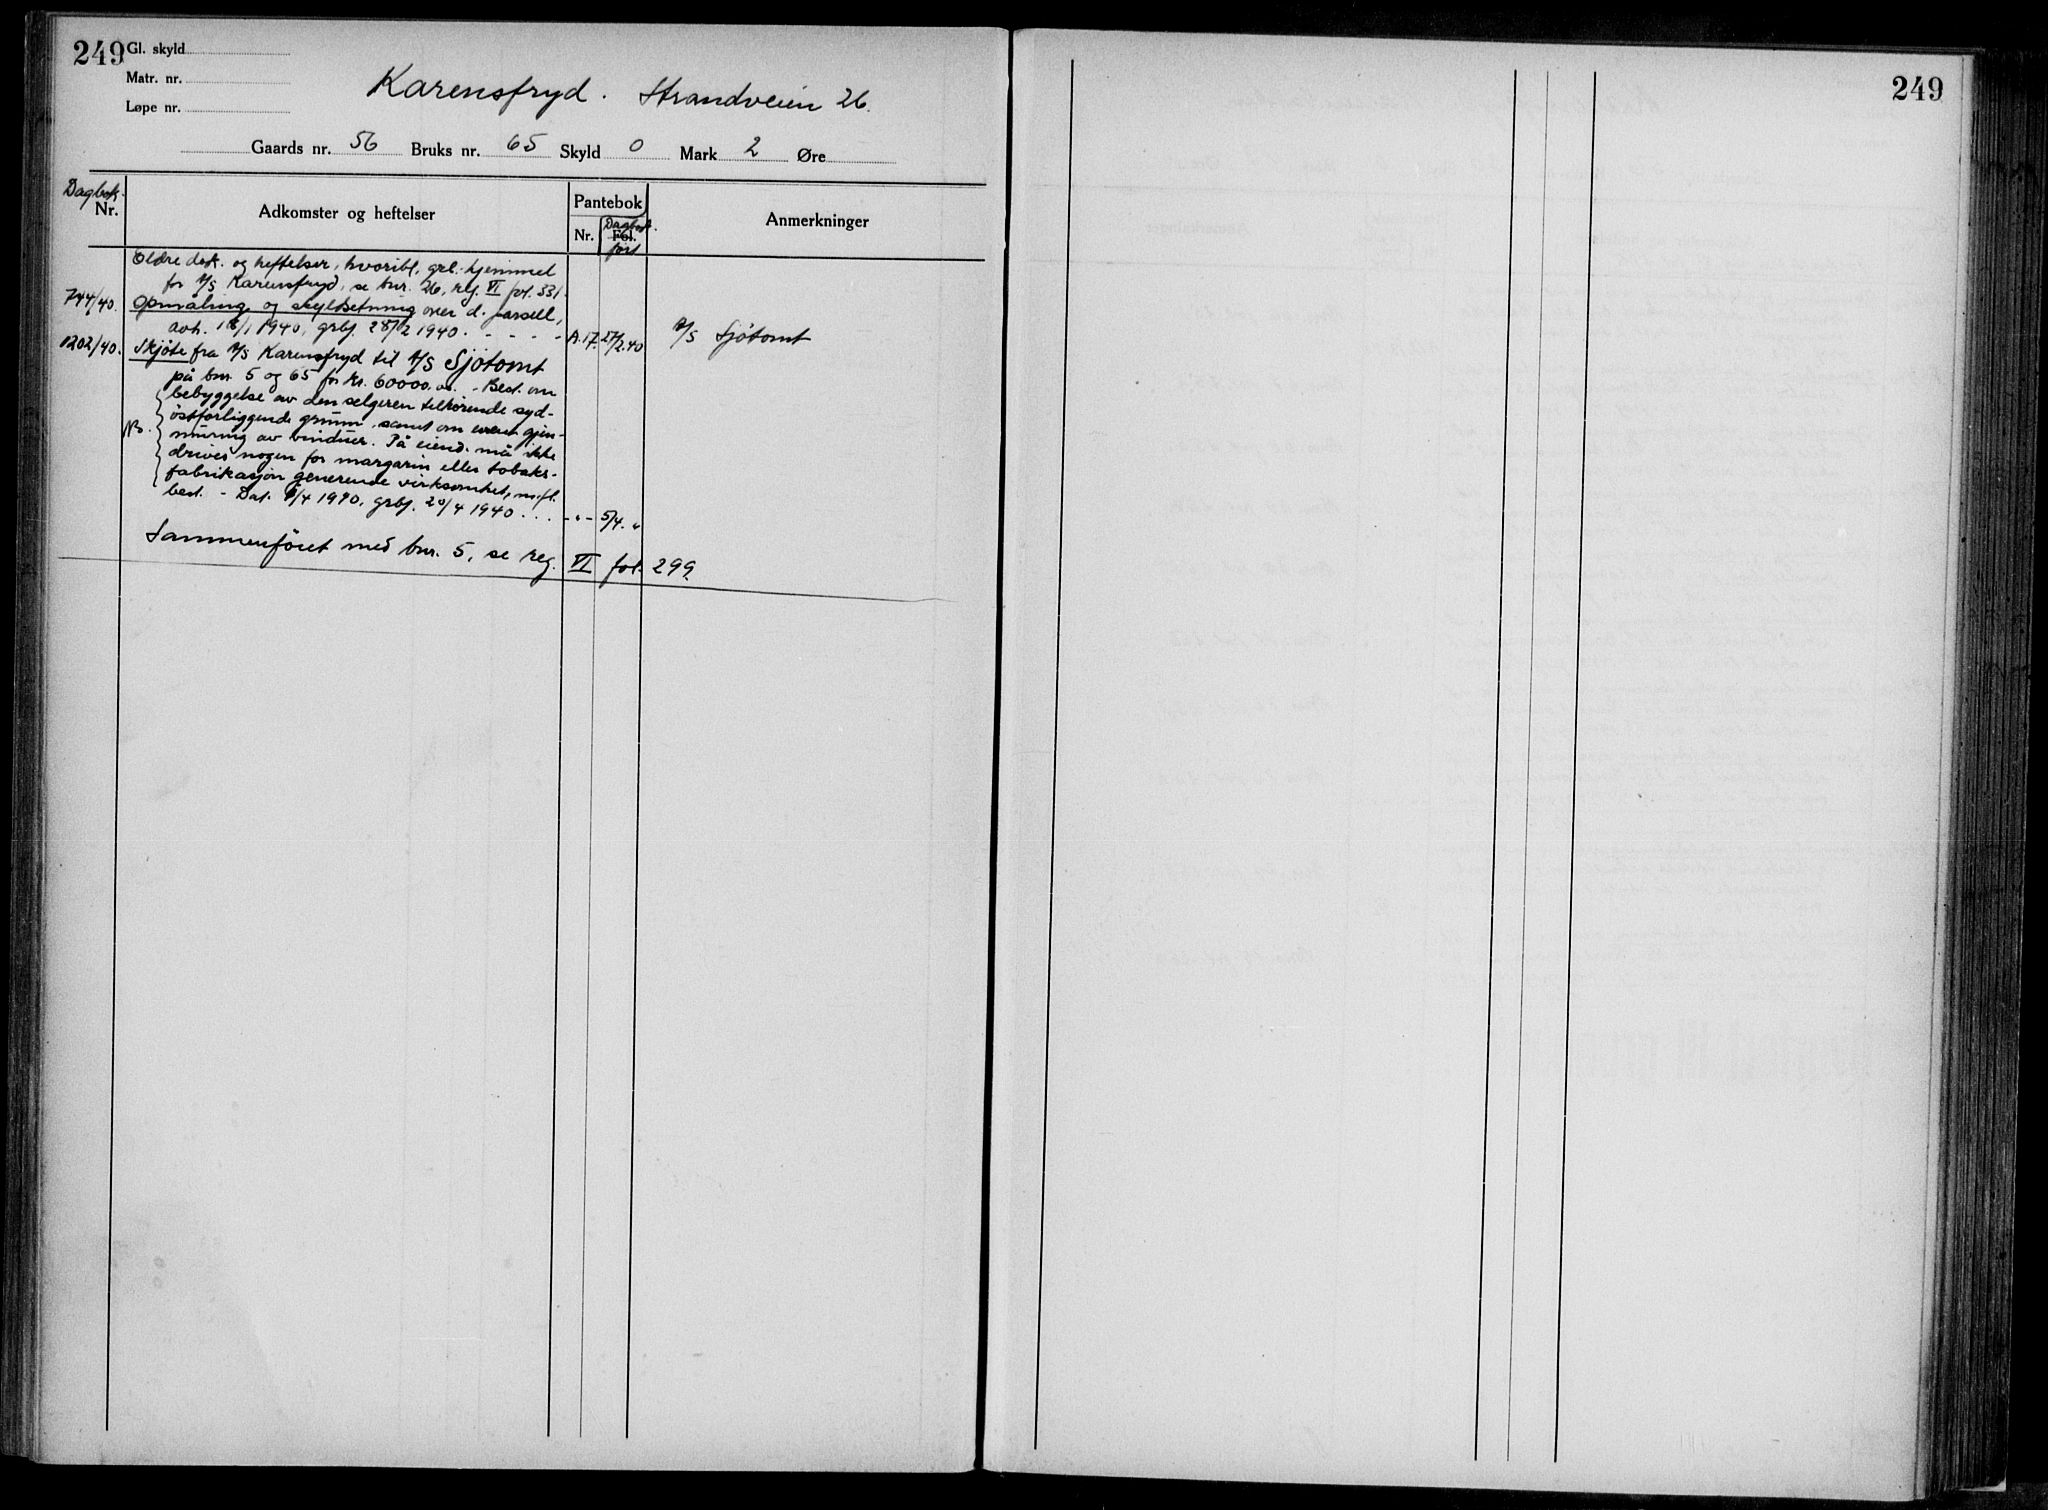 249 Gl. skyld
Matr. nr.
Løpe nr.
Karensfryd. Strandveien 26.
Gaards nr. 56 Bruks nr. 65 Skyld 0 Mark 2 Øre
Dagbok.
Nr.
Adkomster og heftelser
Pantebok
Nr. Fol.
Dagbok. ført
Anmerkninger
Eldre dok. og heftelser, hvoribl. grl. hjemmel
for A/S Karensfryd, se bnr. 26, reg. VI fol. 331.
744/40. Opmåling og skyldsetning over d. parsell,
avh. 18/1 1940, grbj. 28/2 1940. - - - - A.17. 27/2.40 A/S Sjøtomt
1202/40. Skjøte fra A/S Karensfryd til A/S Sjøtomt
på bnr. 5 og 65 for kr. 60000.00. - Best. om
bebyggelse av den selgeren tilhørende syd-
østforliggende grunn, samt om event. gjen-
NB. muring av vinduer. På eiend. må ikke
drives nogen for margarin eller tobaks-
fabrikasjon generende virksomhet, m.fl.
best. - Dat. /4 1940, grbj. 20/4 1940 . . . - " - 5/4. "
Sammenføiet med bnr. 5, se reg. VI fol. 299.
249